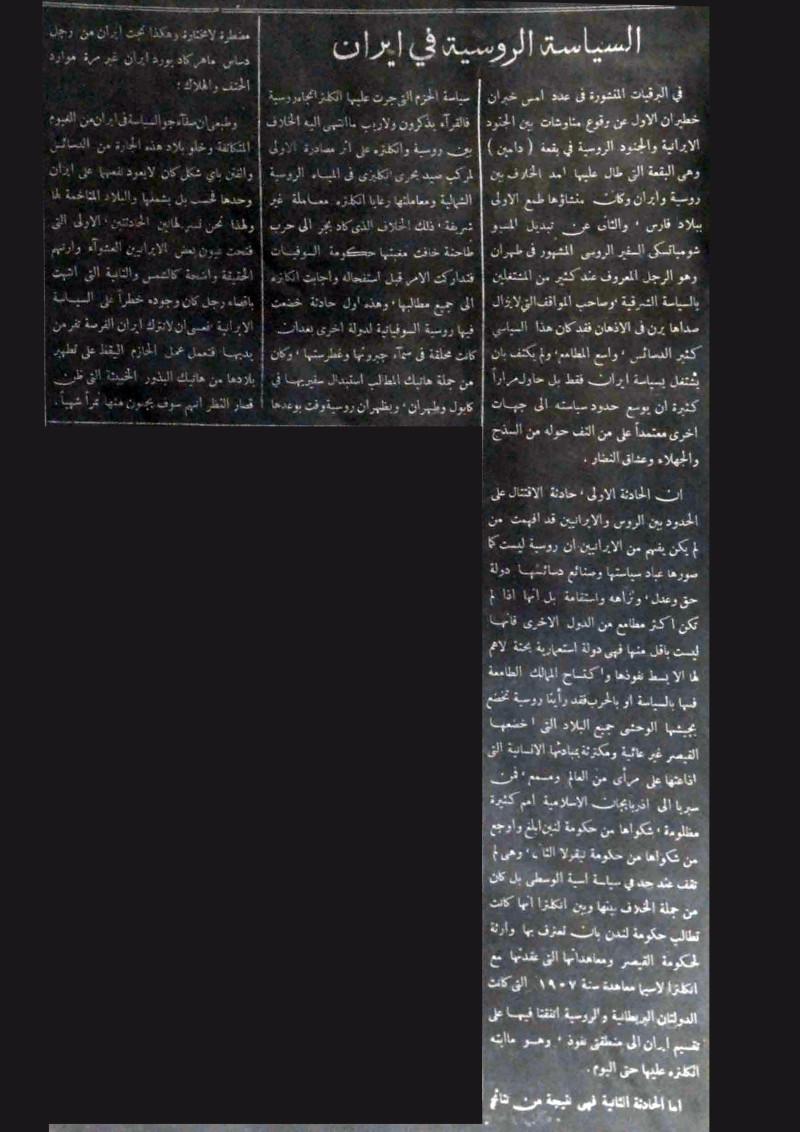 السياسة الروسية في ايران
في البرقيات المنشورة في عدد امس خبران
خطيران الاول عن وقوع مناوشات بين الجنود
الايرانية والجنود الروسية في بقعة ( دامين )
وهي البقعة التي طال عليها امد الخلاف بين
روسية وايران وكان منشاؤها طمع الاولى
ببلاد فارس ، والثاني عن تبديل المسيو
شومياتسكي السفير الروسي المشهور في طهران
وهو الرجل المعروف عند كثير من المشتغلين
بالسياسة الشرقية وصاحب المواقف التي لايزال
صداها يرن في الاذهان فقد كان هذا السياسي
كثير الدسائس ، واسع المطامع، ولم يكتف بان
يشتغل بسياسة ايران فقط بل حاول مراراً
كثيرة ان يوسع حدود سياسته الى جهات
اخرى معتمداً على من التف حوله من السذج
والجهلاء وعشاق النضار .
ان الحادثة الاولى ، حادثة الاقتتال على
الحدود بين الروس والايرانيين قد افهمت من
لم يكن يفهم من الايرانيين ان روسية ليست كما
صورها عباد سياستها وصنائع دسائسها دولة
حق وعدل ، ونزاهه واستقامة بل انها اذا لم
تكن اكثر مطامع من الدول الاخرى فانها
ليست باقل منها فهي دولة استعمارية بحتة لاهم
لها الا بسط نفوذها واكتساح الممالك الطامعة
فيها بالسياسة او بالحرب فقد رأينا روسية تخضع
بجيشها الوحشي جميع البلاد التي اخضعها
القيصر غير عابئة ومكترثة بمبادئها الانسانية التي
اذاعتها على مرأى من العالم ومسمع ، فمن
سبريا الى اذربايجان الاسلامية امم كثيرة
مظلومة ، شكواها من حكومة لنين ابلغ واوجع
من شكواها من حكومة نيقولا الثاني ، وهي لم
تقف عند حد في سياسة اسية الوسطى بل كان
من جملة الخلاف بينها وبين انكلترا انها كانت
تطالب حكومة لندن بان تعترف بها وارثة
لحكومة القيصر ومعاهداتها التي عقدتها مع
انكلترا لاسيما معاهدة سنة ١٩٠٧ التي كانت
الدولتان البريطانية والروسية اتفقتا فيها على
تقسيم ايران الى منطقتي نفوذ ، وهو ماابته
انكلتره عليها حتى اليوم .
اما الحادثة الثانية فهي نتيجة من نتائج
سياسة الحزم التي جرت عليها انكلترا تجاه روسية
فالقراء يذكرون ولاريب ماانتهى اليه الخلاف
بين روسية وانكلتره على اثر مصادرة الاولى
لمركب صيد بحري انكليزي في المياه الروسية
الشمالية ومعاملتها رعايا انكلتره معاملة غير
شريفة ، ذلك الخلاف الذي كاد يجر الى حرب
طاحنة خافت مغبتها حكومة السوفيات
فتداركت الامر قبل استفحاله واجابت انكلتره
الى جميع مطالبها ، وهذه اول حادثة خضعت
فيها روسية السوفياتية لدولة اخرى بعد ان
كانت محلقة في سماء جبروتها وغطرستها ، وكان
من جملة هاتيك المطالب استبدال سفيريها في
كابول وطهران ، ويظهر ان روسية وفت بوعدها
مضطرة لامختارة وهكذا نجت ايران من رجل
دساس ماهر كاد يورد ايران غير مرة موارد
الحتف والهلاك :
وطبعي ان سماء جو السياسة في ايران من الغيوم
المتكاثفة وخلو بلاد هذه الجارة من الدسائس
والفتن باي شكل كان لايعود نفعهما على ايران
وحدها فحسب بل يشملها والبلاد المتاخمة لها
ولهذا نحن نسر لهاتين الحادثتين ، الاولى التي
فتحت عيون بعض الايرانيين العشواء وارتهم
الحقيقة واضحة كالشمس والثانية التي انتهت
باقصاء رجل كان وجوده خطراً على السياسة
الايرانية فعسى ان لاتترك ايران الفرصة تفر من
يديها فتعمل عمل الحازم اليقظ على تطهير
بلادها من هاتيك البذور الخبيثة التي ظن
قصار النظر انهم سوف يجنون منها ثمراً شهياً .